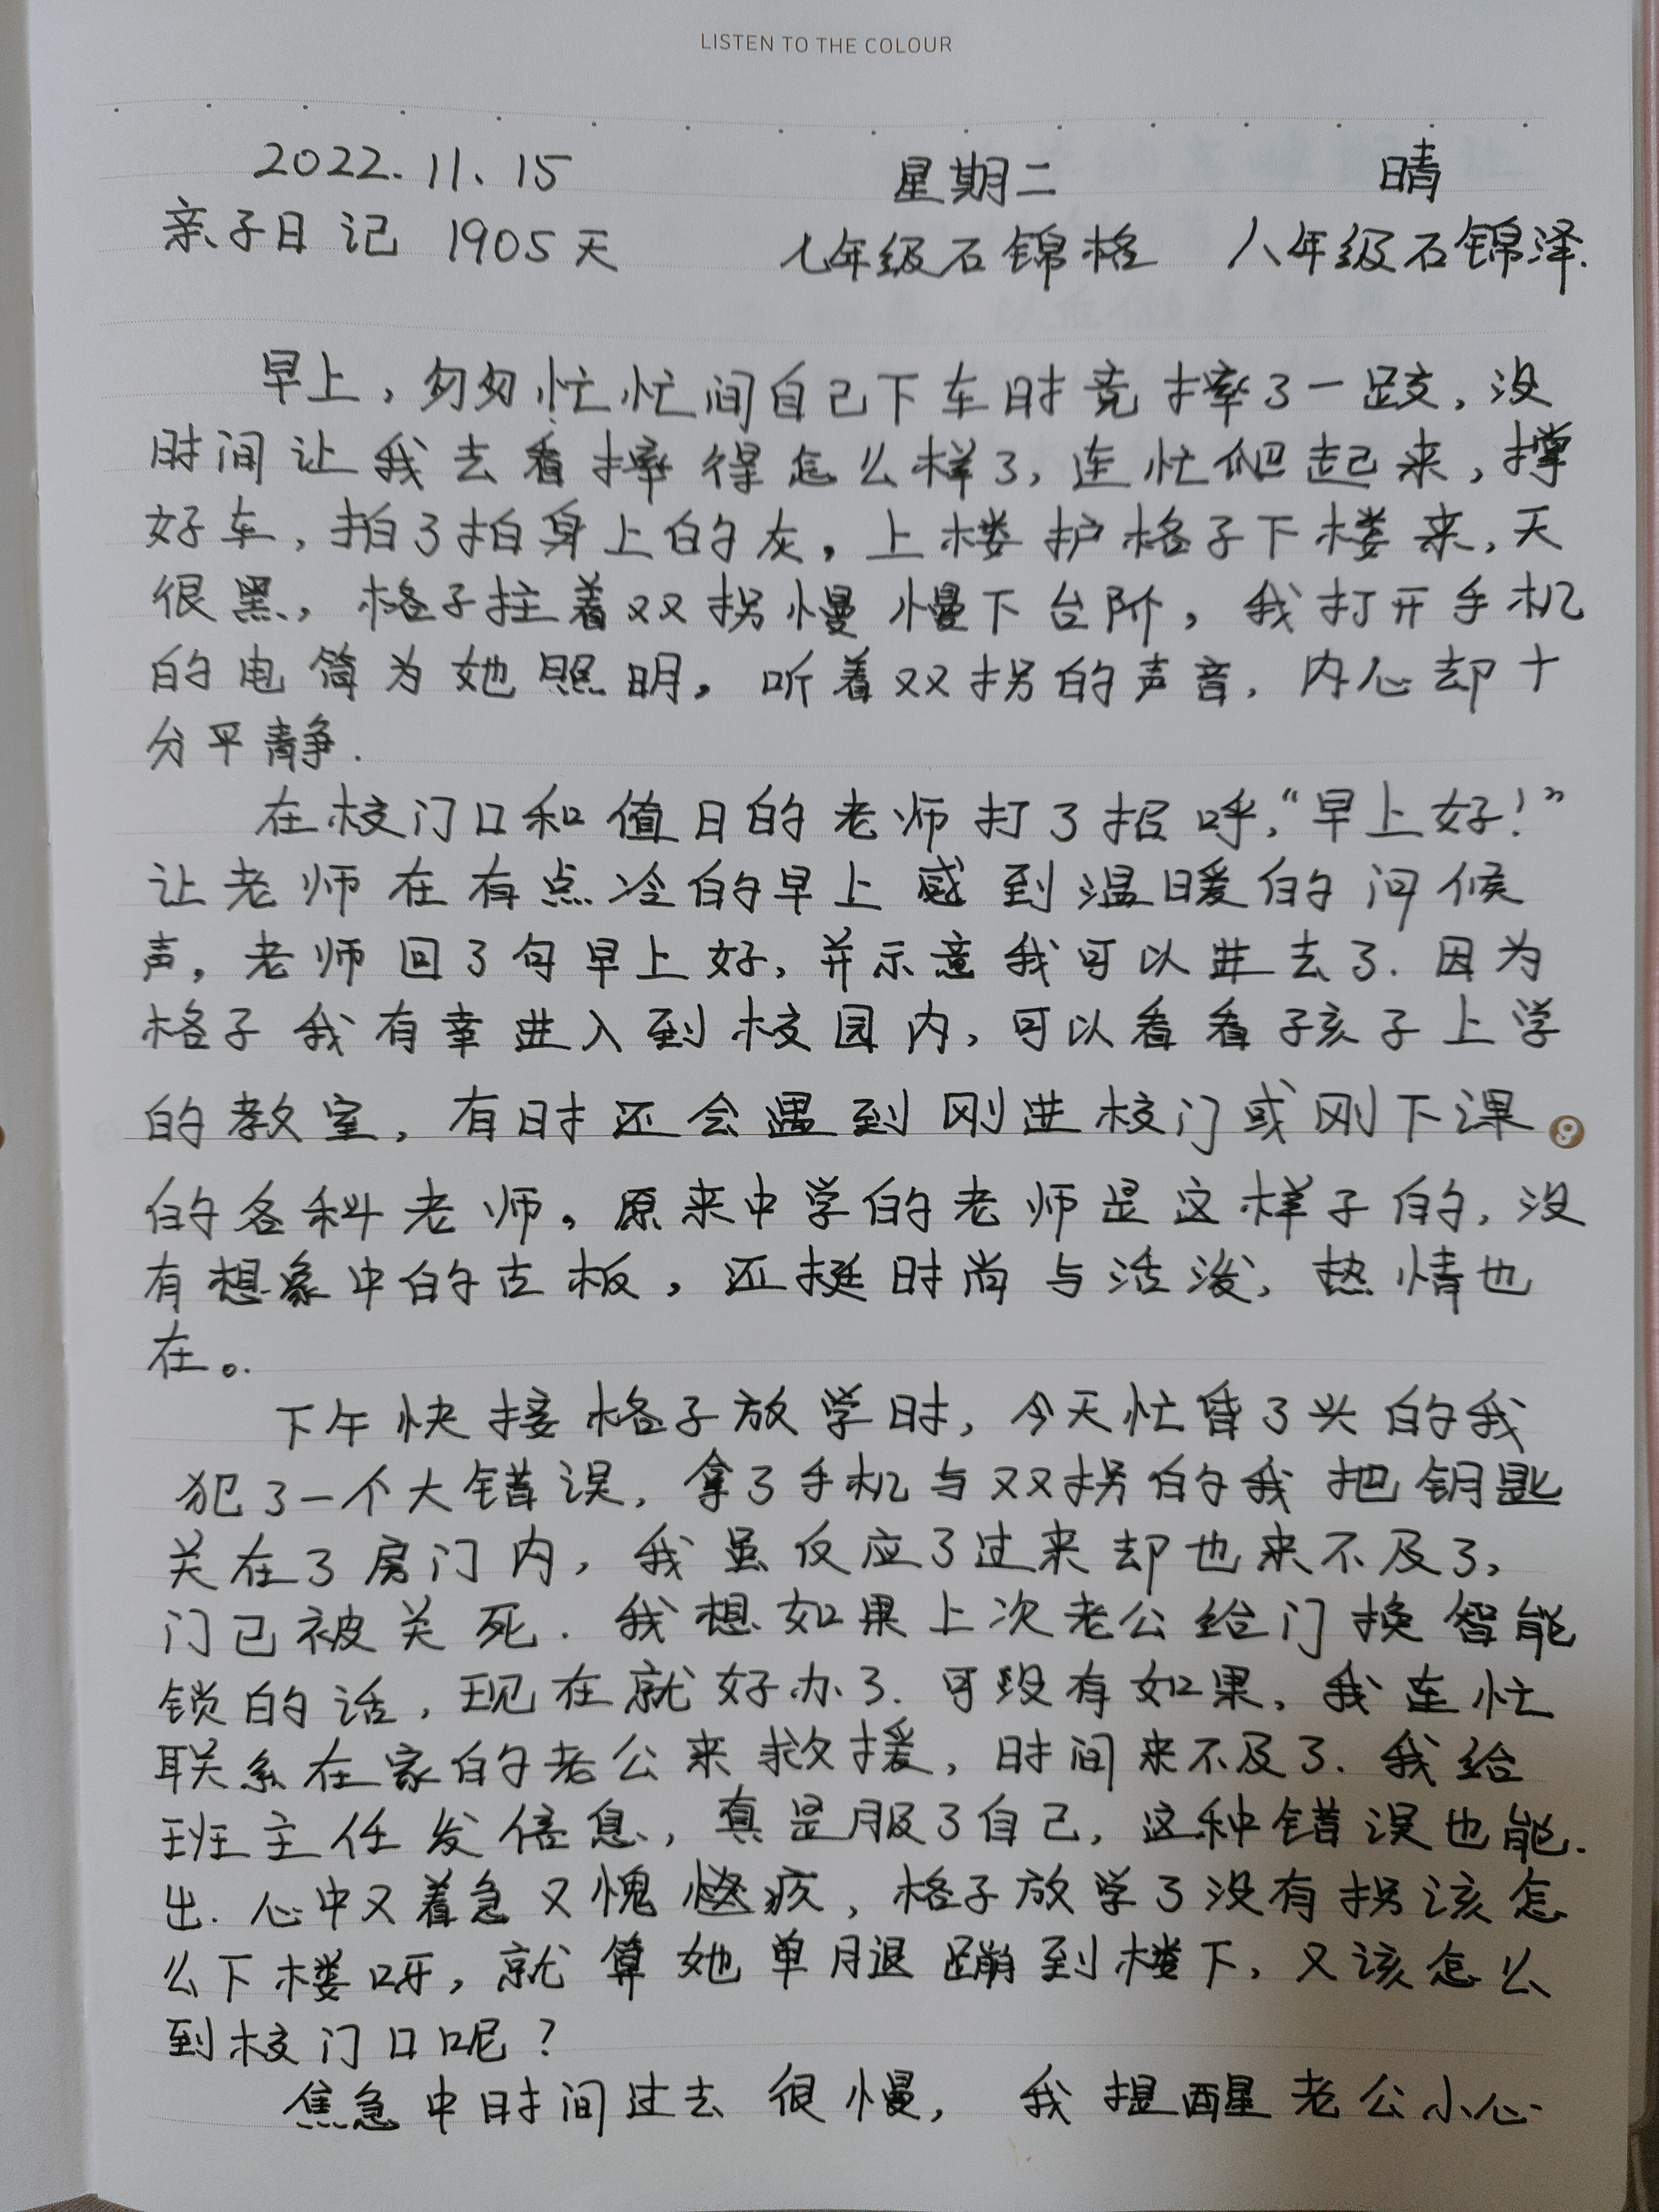 LISTEN TO THE COLOUR
2022.11.15 星期二 晴
亲子日记 1905天 七年级石锦格 八年级石锦泽.
早上，匆匆忙忙间自己下车时竟摔了一跤，没
时间让我去看摔得怎么样了，连忙爬起来，撑
好车，拍了拍身上的灰，上楼护格子下楼来，天
很黑，格子拄着双拐慢慢下台阶，我打开手机
的电筒为她照明，听着双拐的声音，内心却十
分平静.
在校门口和值日的老师打了招呼，“早上好！”
让老师在有点冷的早上感到温暖的问候
声，老师回了句早上好，并示意我可以进去了.因为
格子我有幸进入到校园内，可以看看孩子上学
的教室，有时还会遇到刚进校门或刚下课
9
的各科老师。原来中学的老师是这样子的，没
有想象中的古板，还挺时尚与活泼，热情也
在。
下午快接格子放学时，今天忙昏了头的我
犯了一个大错误，拿了手机与双拐的我把钥匙
关在了房门内，我虽反应了过来却也来不及了，
门已被关死.我想如果上次老公给门换智能
锁的话，现在就好办了.可没有如果，我连忙
联系在家的老公来救援，时间来不及了.我给
班主任发信息，真是服了自己，这种错误也能
出.心中又着急又愧疚，格子放学了没有拐该怎
么下楼呀，就算她单腿蹦到楼下，又该怎么
到校门口呢？
焦急中时间过去很慢，我提醒老公小心